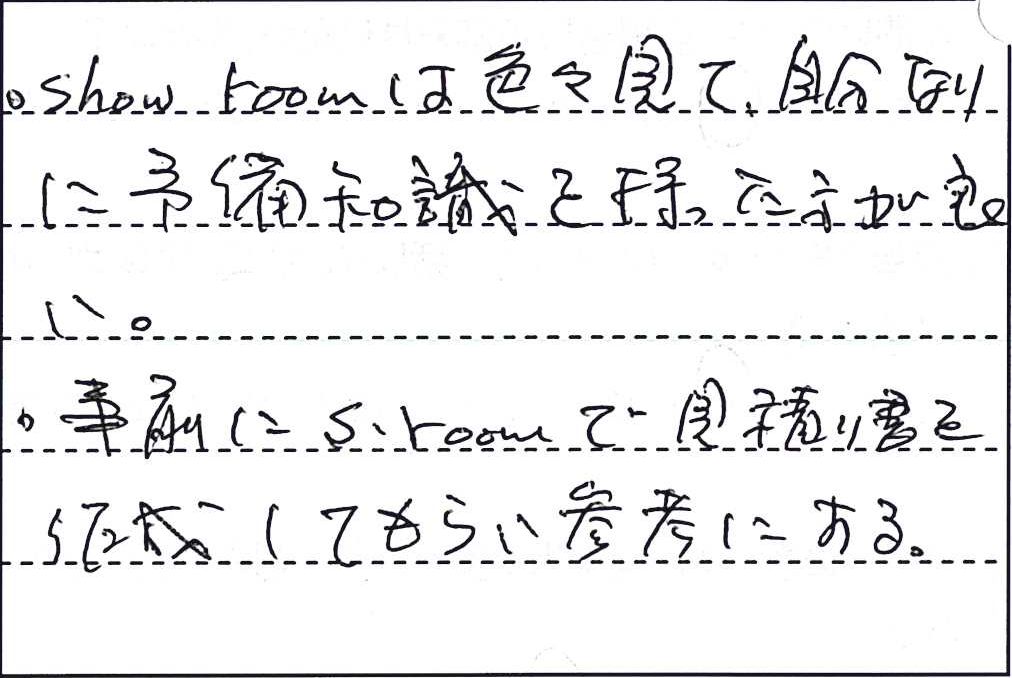 。show roomは色々見て、自分なり
に予備知識を持った方が良
い。
・事前にS.roomで見積り書を
作成してもらい参考にする。